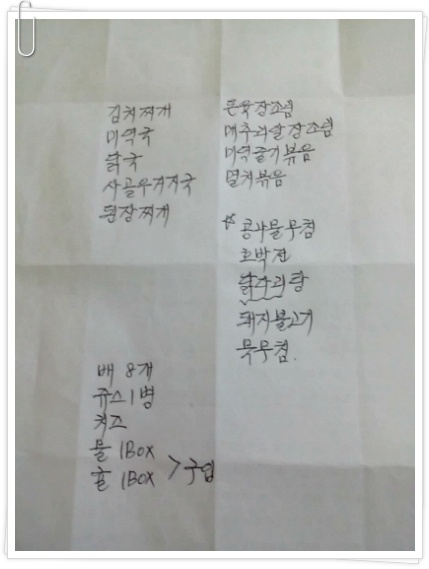 김치찌개
미역국
닭국
사골우거지국
된장찌개
돈육장조림
메추리알장조림
미역줄기볶음
멸치볶음
☆ 콩나물무침
호박전
돼지불고기
묵무침.
배 8개
쥬스 1병
치즈
물 1Box
귤 1Box > 구입